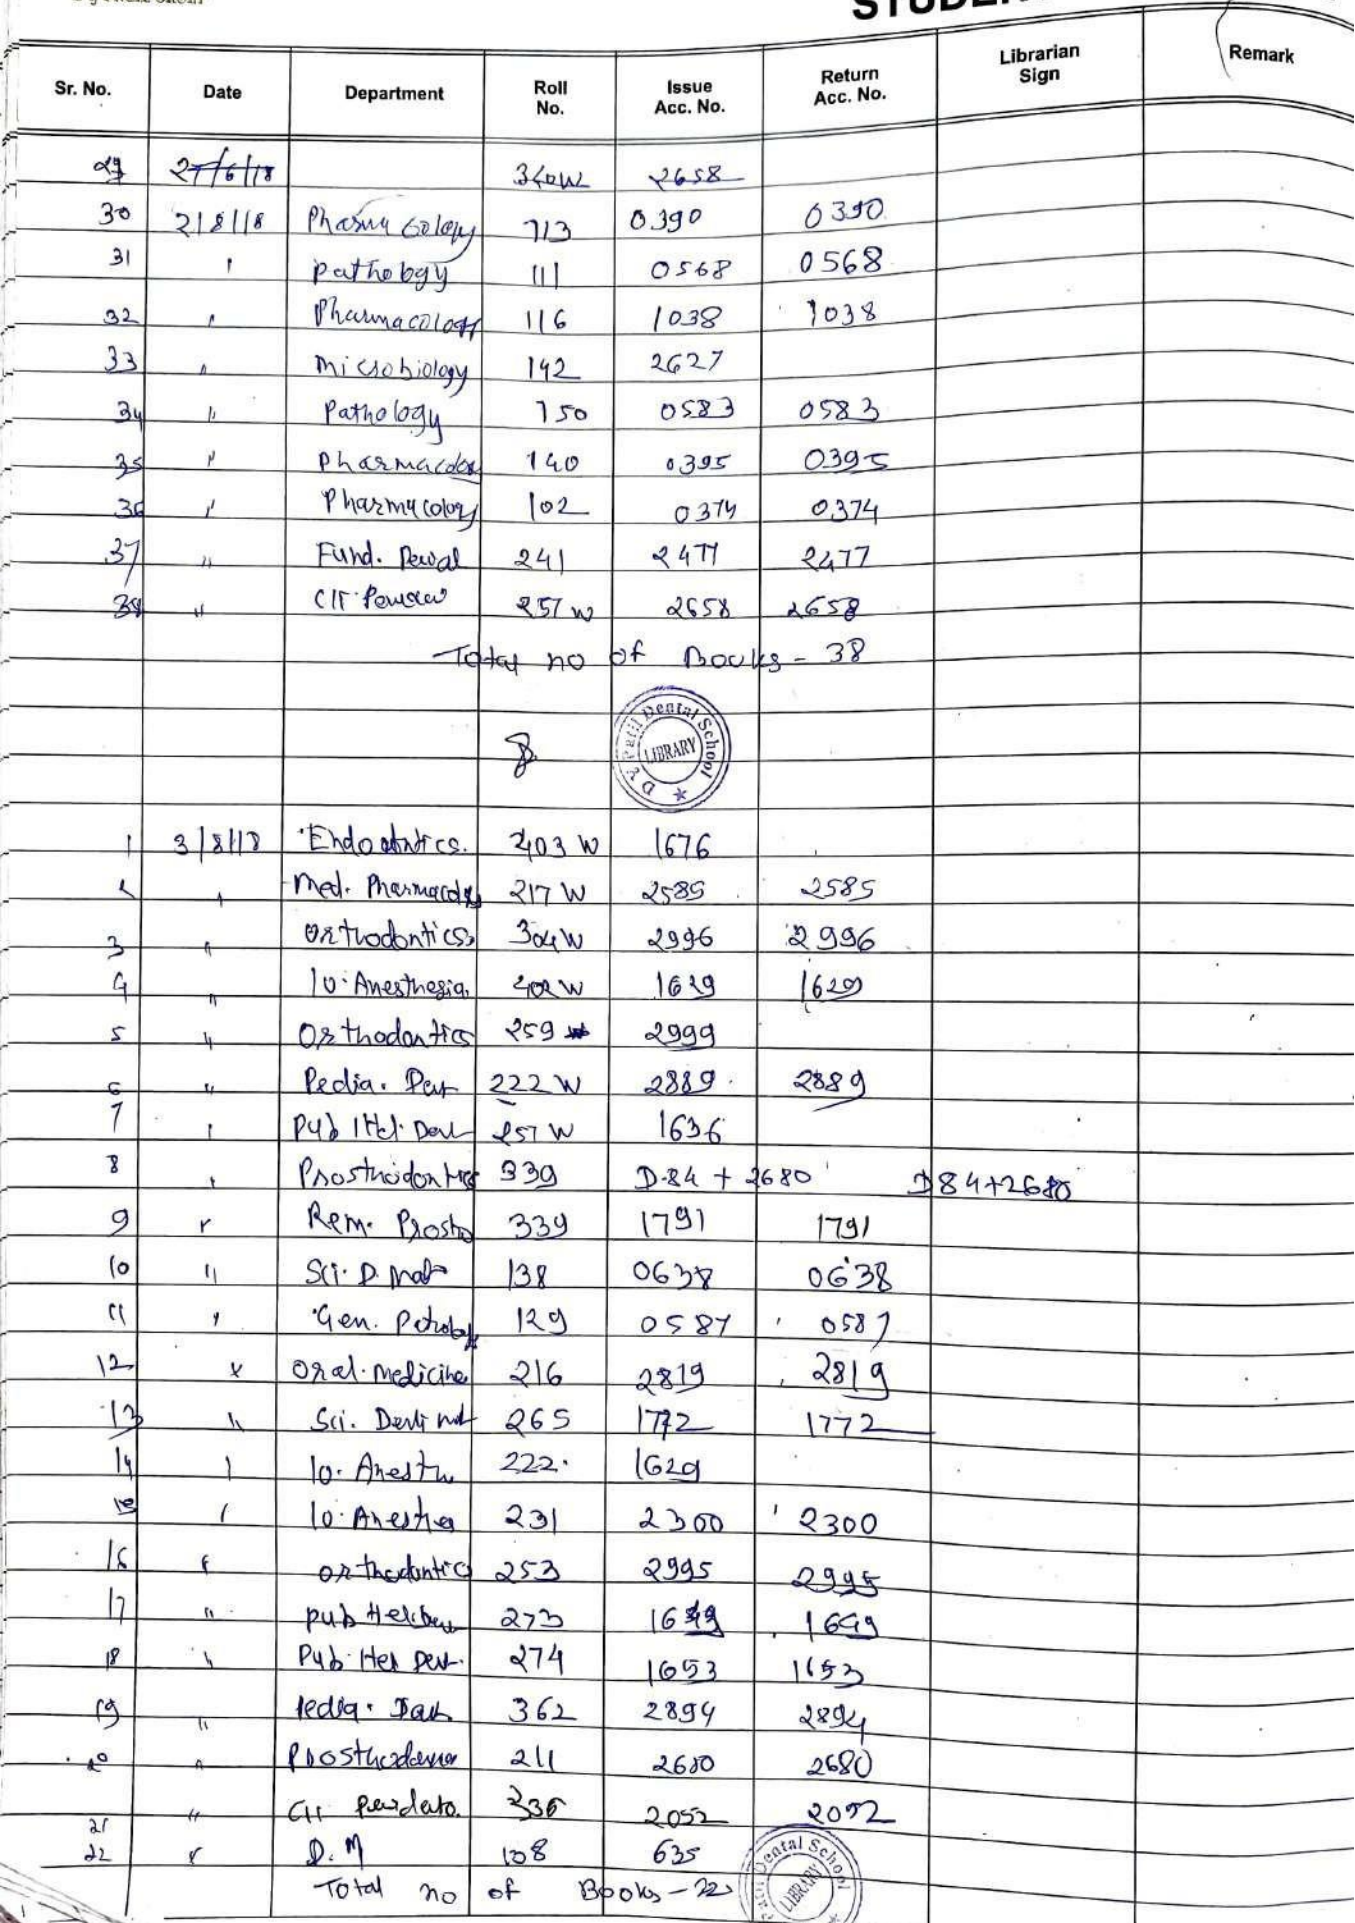 Sr. No. Date Department Roll No. Issue Acc. No. Return Acc. No. Librarian Sign Remark
29 27/6/18 340W 2658
30 2/8/18 Pharmacology 113 0390 0390
31 " Pathology 111 0568 0568
32 " Pharmacology 116 1038 1038
33 " Microbiology 142 2627
34 " Pathology 150 0583 0583
35 " Pharmacology 140 0395 0395
36 " Pharmacology 102 0374 0374
37 " Fund. 241 2477 2477
38 " 257 W 2658 2658
Total no of Books - 38
D Y Patil Dental School LIBRARY
1 3/8/18 Endodontics. 203 W 1676
2 " Med. Pharmacology 217 W 2585 2585
3 " Orthodontics 304 W 2996 2996
4 " lo. Anesthesia 202 W 1629 1629
5 " Orthodontics 259 2999
6 " Pedia. Den 222 W 2889 2889
7 " Pub Hel. Den 257 W 1636
8 " Prosthodontics 339 D-84 + 2680 D84+2680
9 " Rem. Prostho 339 1791 1791
10 " Sci. D. Mat 138 0638 0638
11 " Gen. Patholog 129 0587 0587
12 " Oral. Medicine 216 2819 2819
13 " Sci. Dent mat 265 1772 1772
14 " lo. Anesth 222. 1629
15 " lo. Anesthea 231 2300 2300
16 " Orthodontics 253 2995 2995
17 " Pub 273 1649 1649
18 " Pub. Hel Den. 274 1653 1653
19 " Pedia. Den 362 2894 2894
20 " 211 2680 2680
21 " 336 2052 2052
22 " D.M 108 635
Total no of Books - 22
Patil Dental School LIBRARY